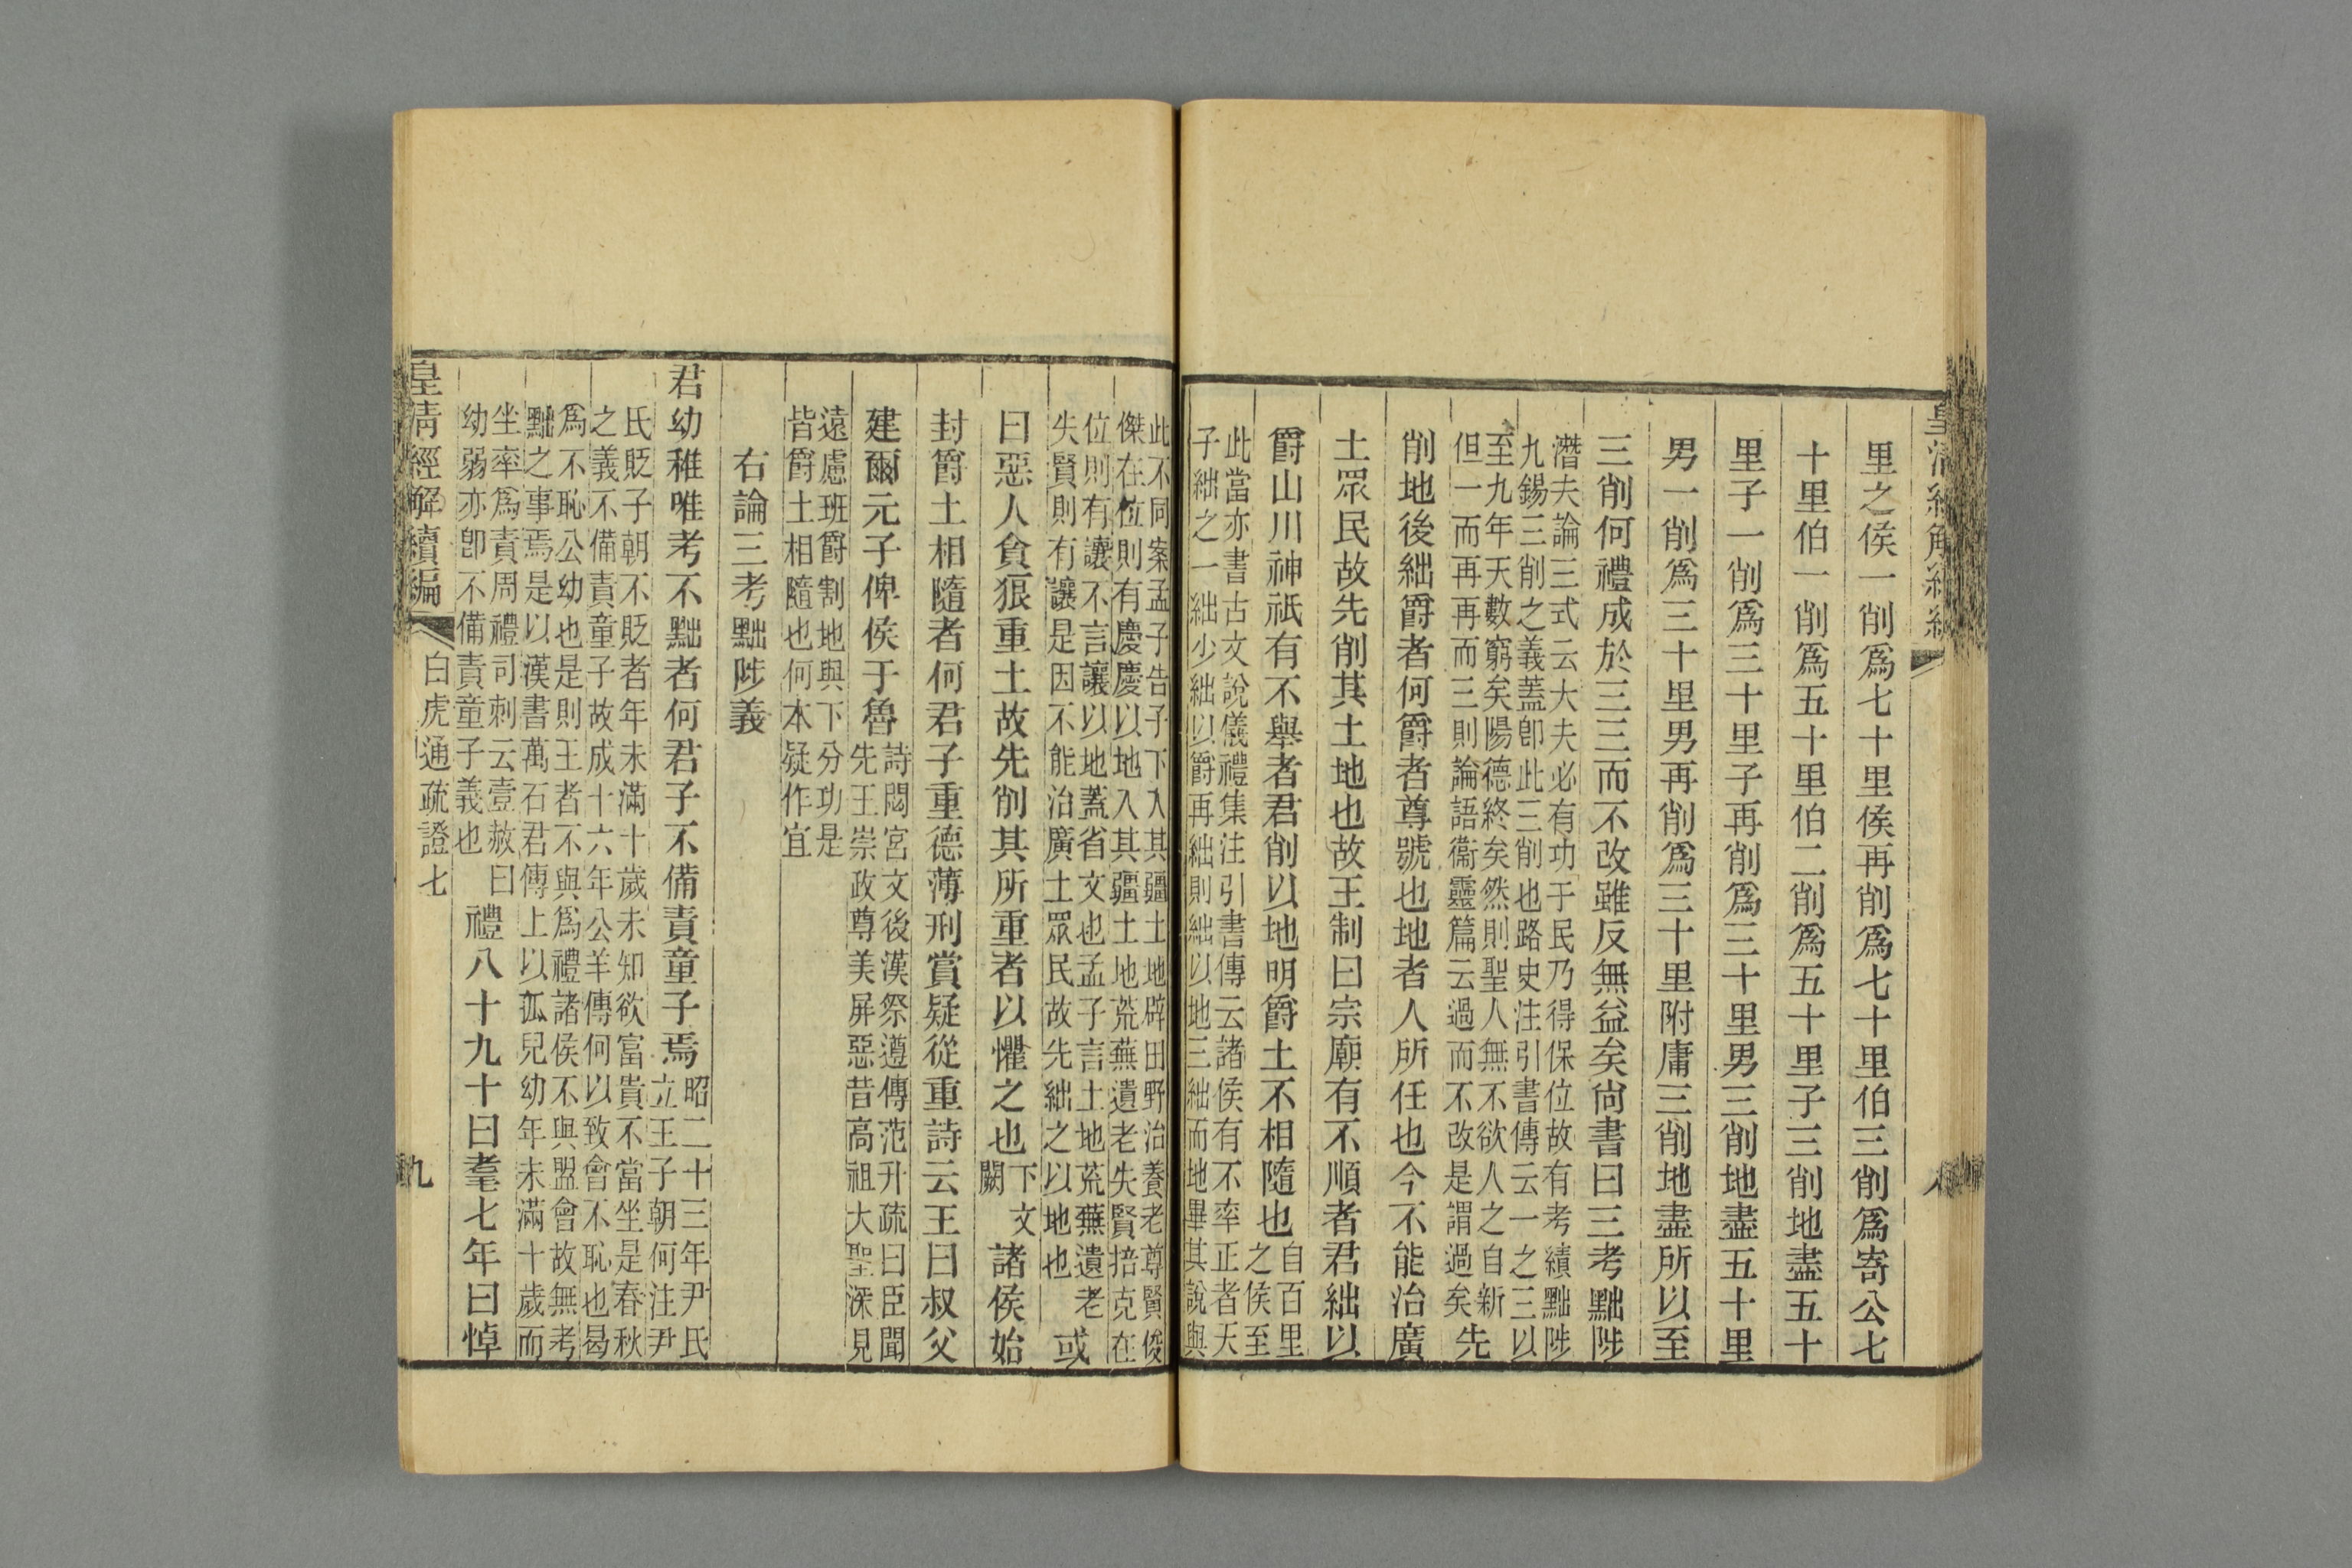 皇清經解續編
八
里之侯一削爲七十里侯再削爲七十里伯三削爲寄公七
十里伯一削爲五十里伯二削爲五十里子三削地盡五十
里子一削爲三十里子再削爲三十里男三削地盡五十里
男一削爲三十里男再削爲三十里附庸三削地盡所以至
三削何禮成於三三而不改雖反無益矣尚書曰三考黜陟
潛夫論三式云大夫必有功于民乃得保位故有考績黜陟
九錫三削之義蓋卽此三削也路史注引書傳云一之三以
至九年天數窮矣陽德終矣然則聖人無不欲人之自新
但一而再再而三則論語衞靈篇云過而不改是謂過矣
先
削地後絀爵者何爵者尊號也地者人所任也今不能治廣
土眾民故先削其土地也故王制曰宗廟有不順者君絀以
爵山川神祇有不舉者君削以地明爵土不相隨也
自百里
之侯至
此當亦書古文說儀禮集注引書傳云諸侯有不率正者天
子絀之一絀少絀以爵再絀則絀以地三絀而地畢其說與
此不同案孟子告子下入其疆土地辟田野治養老尊賢俊
傑在位則有慶慶以地入其疆土地荒蕪遺老失賢掊克在
位則有讓不言讓以地蓋省文也孟子言土地荒蕪遺老
失賢則有讓是因不能治廣土眾民故先絀之以地也
或
曰惡人貪狠重土故先削其所重者以懼之也
下文
闕
諸侯始
封爵土相隨者何君子重德薄刑賞疑從重詩云王曰叔父
建爾元子俾侯于魯
詩閟宮文後漢祭遵傳范升疏曰臣聞
先王崇政尊美屏惡昔高祖大聖深見
遠慮班爵割地與下分功是
皆爵土相隨也何本疑作宜
右論三考黜陟義
君幼稚唯考不黜者何君子不備責童子焉
昭二十三年尹氏
立王子朝何注尹
氏貶子朝不貶者年未滿十歲未知欲富貴不當坐是春秋
之義不備責童子故成十六年公羊傳何以致會不恥也曷
爲不恥公幼也是則王者不與爲禮諸侯不與盟會故無考
黜之事焉是以漢書萬石君傳上以孤兒幼年未滿十歲而
坐率爲責周禮司刺云壹赦曰
幼弱亦卽不備責童子義也
禮八十九十曰耄七年曰悼
皇清經解續編
白虎通疏證七
九